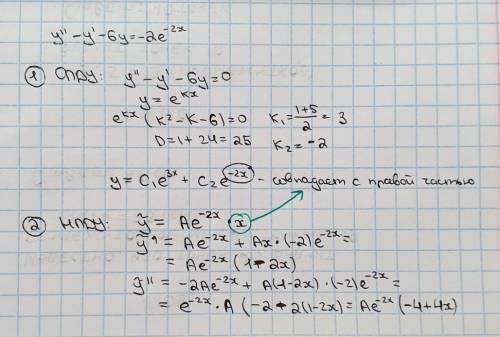 y'' - y' - 6y = -2e^{-2x}
① ОЛДУ: y'' - y' - 6y = 0
y = e^{kx}
e^{kx} (k² - k - 6) = 0 k₁ = \frac{1+5}{2} = 3
D = 1 + 24 = 25 k₂ = -2
y = C₁e^{3x} + C₂e^{-2x} - совпадает с правой частью
② НЛДУ: ỹ = Ae^{-2x} · x
ỹ' = Ae^{-2x} + Ax·(-2)e^{-2x} =
= Ae^{-2x} (1 - 2x)
ỹ'' = -2Ae^{-2x} + A(1-2x)·(-2)e^{-2x} =
= e^{-2x}·A (-2 - 2(1-2x) = Ae^{-2x} (-4+4x)